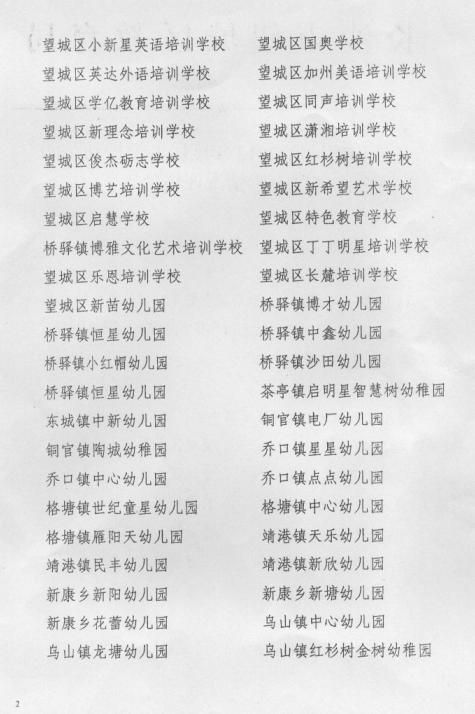 望城区小新星英语培训学校 望城区国奥学校
望城区英达外语培训学校 望城区加州美语培训学校
望城区学亿教育培训学校 望城区同声培训学校
望城区新理念培训学校 望城区潇湘培训学校
望城区俊杰砺志学校 望城区红杉树培训学校
望城区博艺培训学校 望城区新希望艺术学校
望城区启慧学校 望城区特色教育学校
桥驿镇博雅文化艺术培训学校 望城区丁丁明星培训学校
望城区乐恩培训学校 望城区长麓培训学校
望城区新苗幼儿园 桥驿镇博才幼儿园
桥驿镇恒星幼儿园 桥驿镇中鑫幼儿园
桥驿镇小红帽幼儿园 桥驿镇沙田幼儿园
桥驿镇恒星幼儿园 茶亭镇启明星智慧树幼稚园
东城镇中新幼儿园 铜官镇电厂幼儿园
铜官镇陶城幼稚园 乔口镇星星幼儿园
乔口镇中心幼儿园 乔口镇点点幼儿园
格塘镇世纪童星幼儿园 格塘镇中心幼儿园
格塘镇雁阳天幼儿园 靖港镇天乐幼儿园
靖港镇民丰幼儿园 靖港镇新欣幼儿园
新康乡新阳幼儿园 新康乡新塘幼儿园
新康乡花蕾幼儿园 乌山镇中心幼儿园
乌山镇龙塘幼儿园 乌山镇红杉树金树幼稚园
2